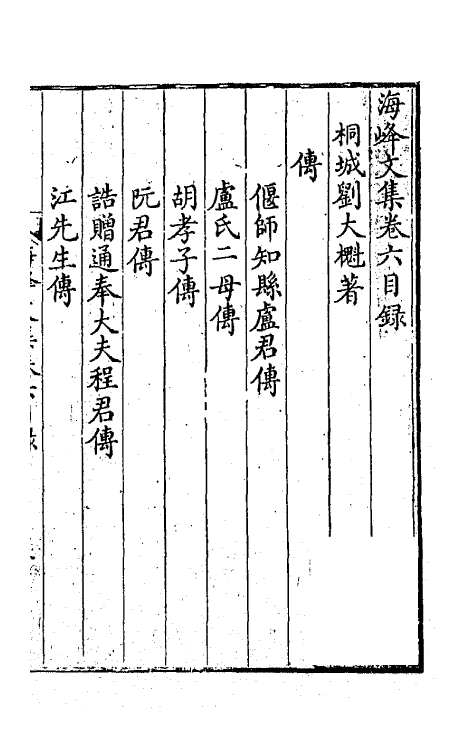 海峰文集卷六目録
桐城劉大櫆著
傳
偃師知縣盧君傳
盧氏二母傳
胡孝子傳
阮君傳
誥贈通奉大夫程君傳
江先生傳